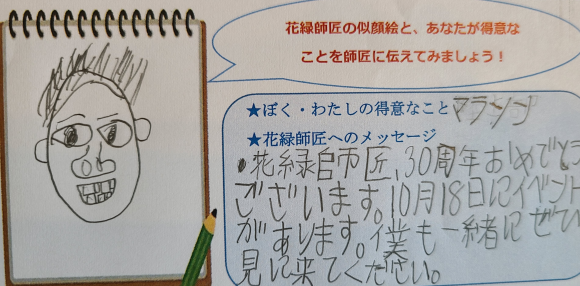 花緑師匠の似顔絵と、あなたが得意な
ことを師匠に伝えてみましょう！
★ぼく・わたしの得意なこと マラソン
★花緑師匠へのメッセージ
•花緑自市匠、30周年おめでとう
ございます。10月18日にイベント
があります。僕も一緒にぜひ
見に来てください。